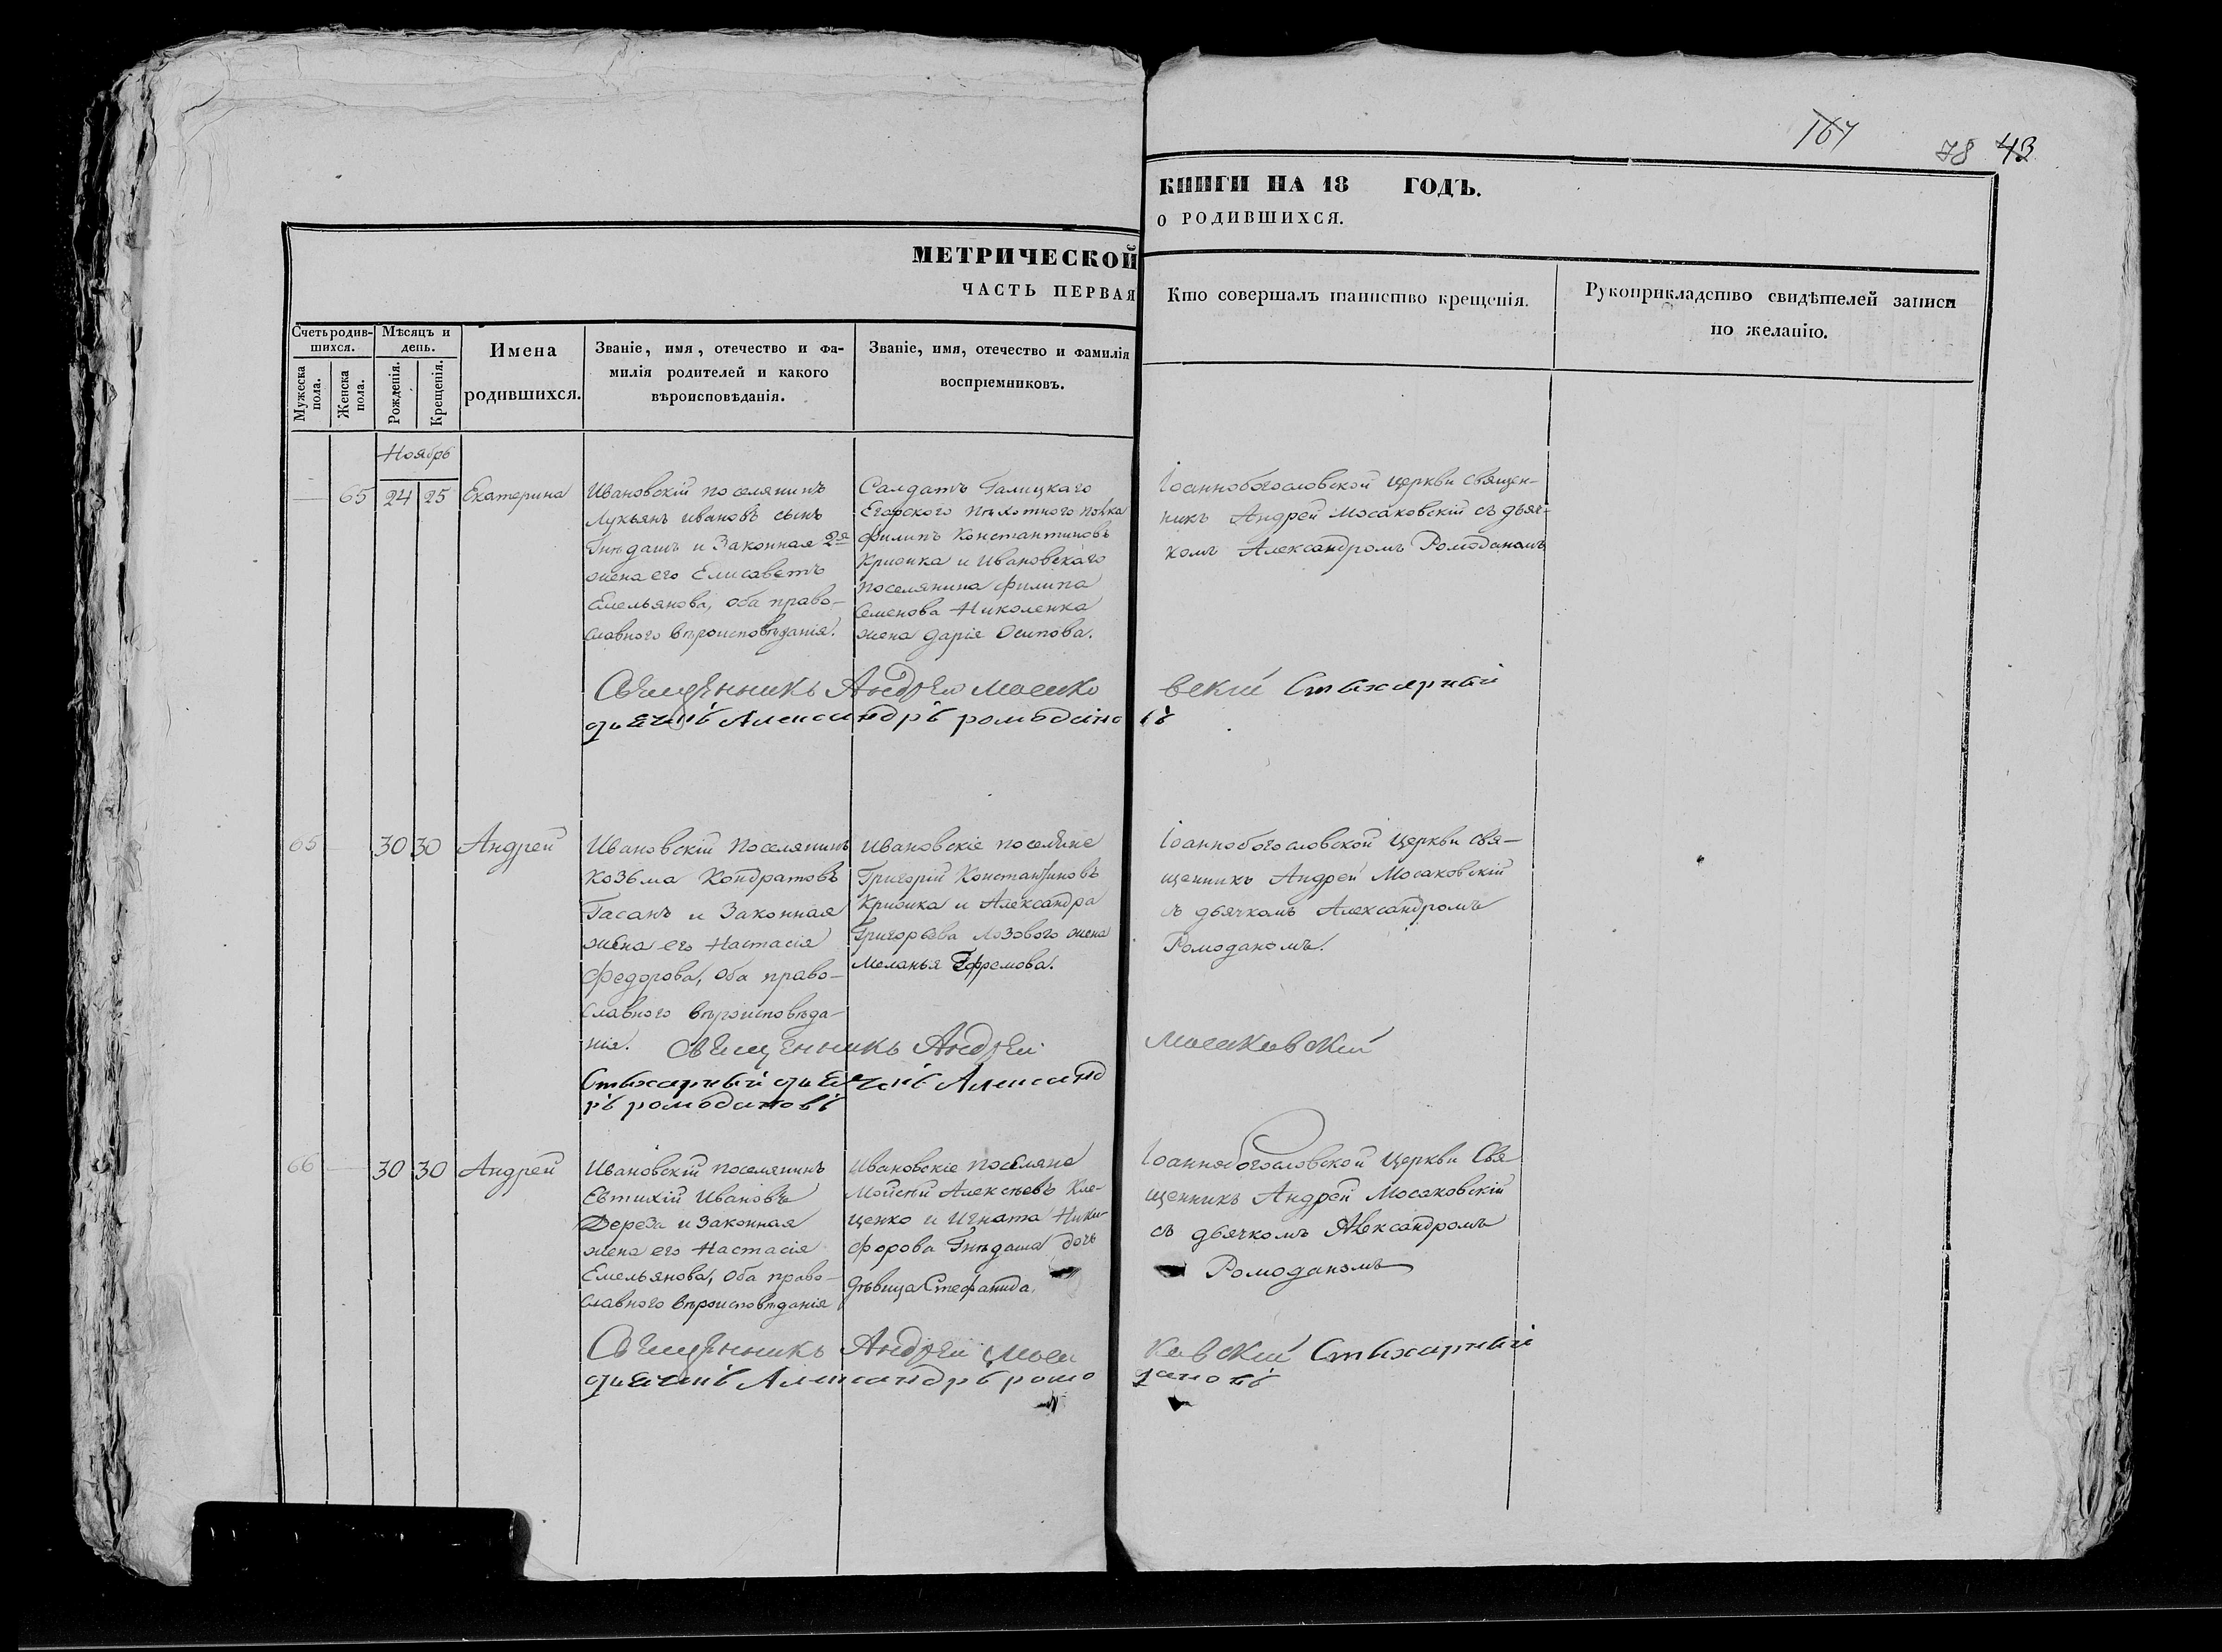 167
78 43
МЕТРИЧЕСКОЙ
ЧАСТЬ ПЕРВАЯ
КНИГИ НА 18 ГОДЪ.
О РОДИВШИХСЯ.
Счетъ родив-
шихся.
Мужеска
пола.
Женска
пола.
Мѣсяцъ и
день.
Рожденія.
Крещенія.
Имена
родившихся.
Званіе, имя, отечество и фа-
милія родителей и какого
вѣроисповѣданія.
Званіе, имя, отечество и фамилія
воспріемниковъ.
Кто совершалъ таинство крещенія.
Рукоприкладство свидѣтелей записи
по желанію.
Ноябрь
— 65 24 25 Екатерина
Ивановскій поселянинъ
Лукьянъ Ивановъ сынъ
Гнѣдашъ и Законная 2я
жена его Елисаветъ
Емельянова, оба право-
славнаго вѣроисповѣданія.
Салдатъ Галицкаго
Егарского пѣхотного полка
Филипъ Константиновъ
и Ивановскаго
поселянина Филипа
Семенова Николенка
жена Дарія Осипова.
Іоаннобогословской церкви священ-
никъ Андрей Мосаковскій съ дьяч-
комъ Александромъ Ромоданомъ
Священникъ Андрей Мосаковскій Стихарный
дьячекъ Александръ ромодановъ
65 — 30 30 Андрей
Ивановскій Поселянинъ
Козьма Кондратовъ
Гасанъ и Законная
жена его Настасія
Федорова, оба право-
славного вѣроисповѣда-
нія.
Ивановскіе поселяне
Григорій Константиновъ
и Александра
Григорьева Лозового жена
Меланья Ефремова.
Іоаннобогословской церкви свя-
щенникъ Андрей Мосаковскій
съ дьячкомъ Александромъ
Ромоданомъ.
Священникъ Андрей Мосаковскій
Стихарный дьячекъ Александ
ръ ромодановъ
66 — 30 30 Андрей
Ивановскій поселянинъ
Евтихій Ивановъ
Дереза и Законная
жена его Настасія
Емельянова, оба право-
славного вѣроисповѣданія
Ивановскіе поселяне
Мойсѣй Алексѣевъ Кле-
ценко и Игната Ники-
форова Гнѣдаша дочь
дѣвица Стефанида.
Іоаннобогословской Церкви Свя
щенникъ Андрей Мосаковскій
съ дьячкомъ Александромъ
Ромоданомъ
Священникъ Андрей Мосаковскій Стихарный
дьячекъ Александръ ромодановъ